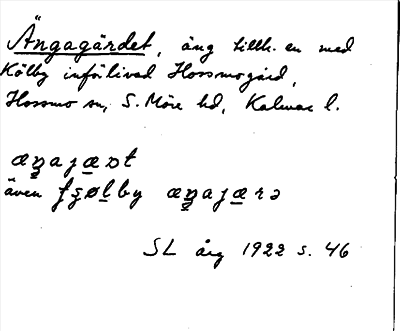 Ängagärdet, äng tillh. en med
Kölby införlivad Hossmogård,
Hossmo sn, S. Möre hd, Kalmar l.
även
SL årg 1922 s. 46